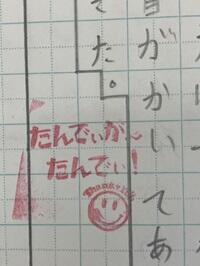 がかいてあ
た。
たんでぃが～
たんでぃ！
Thank you